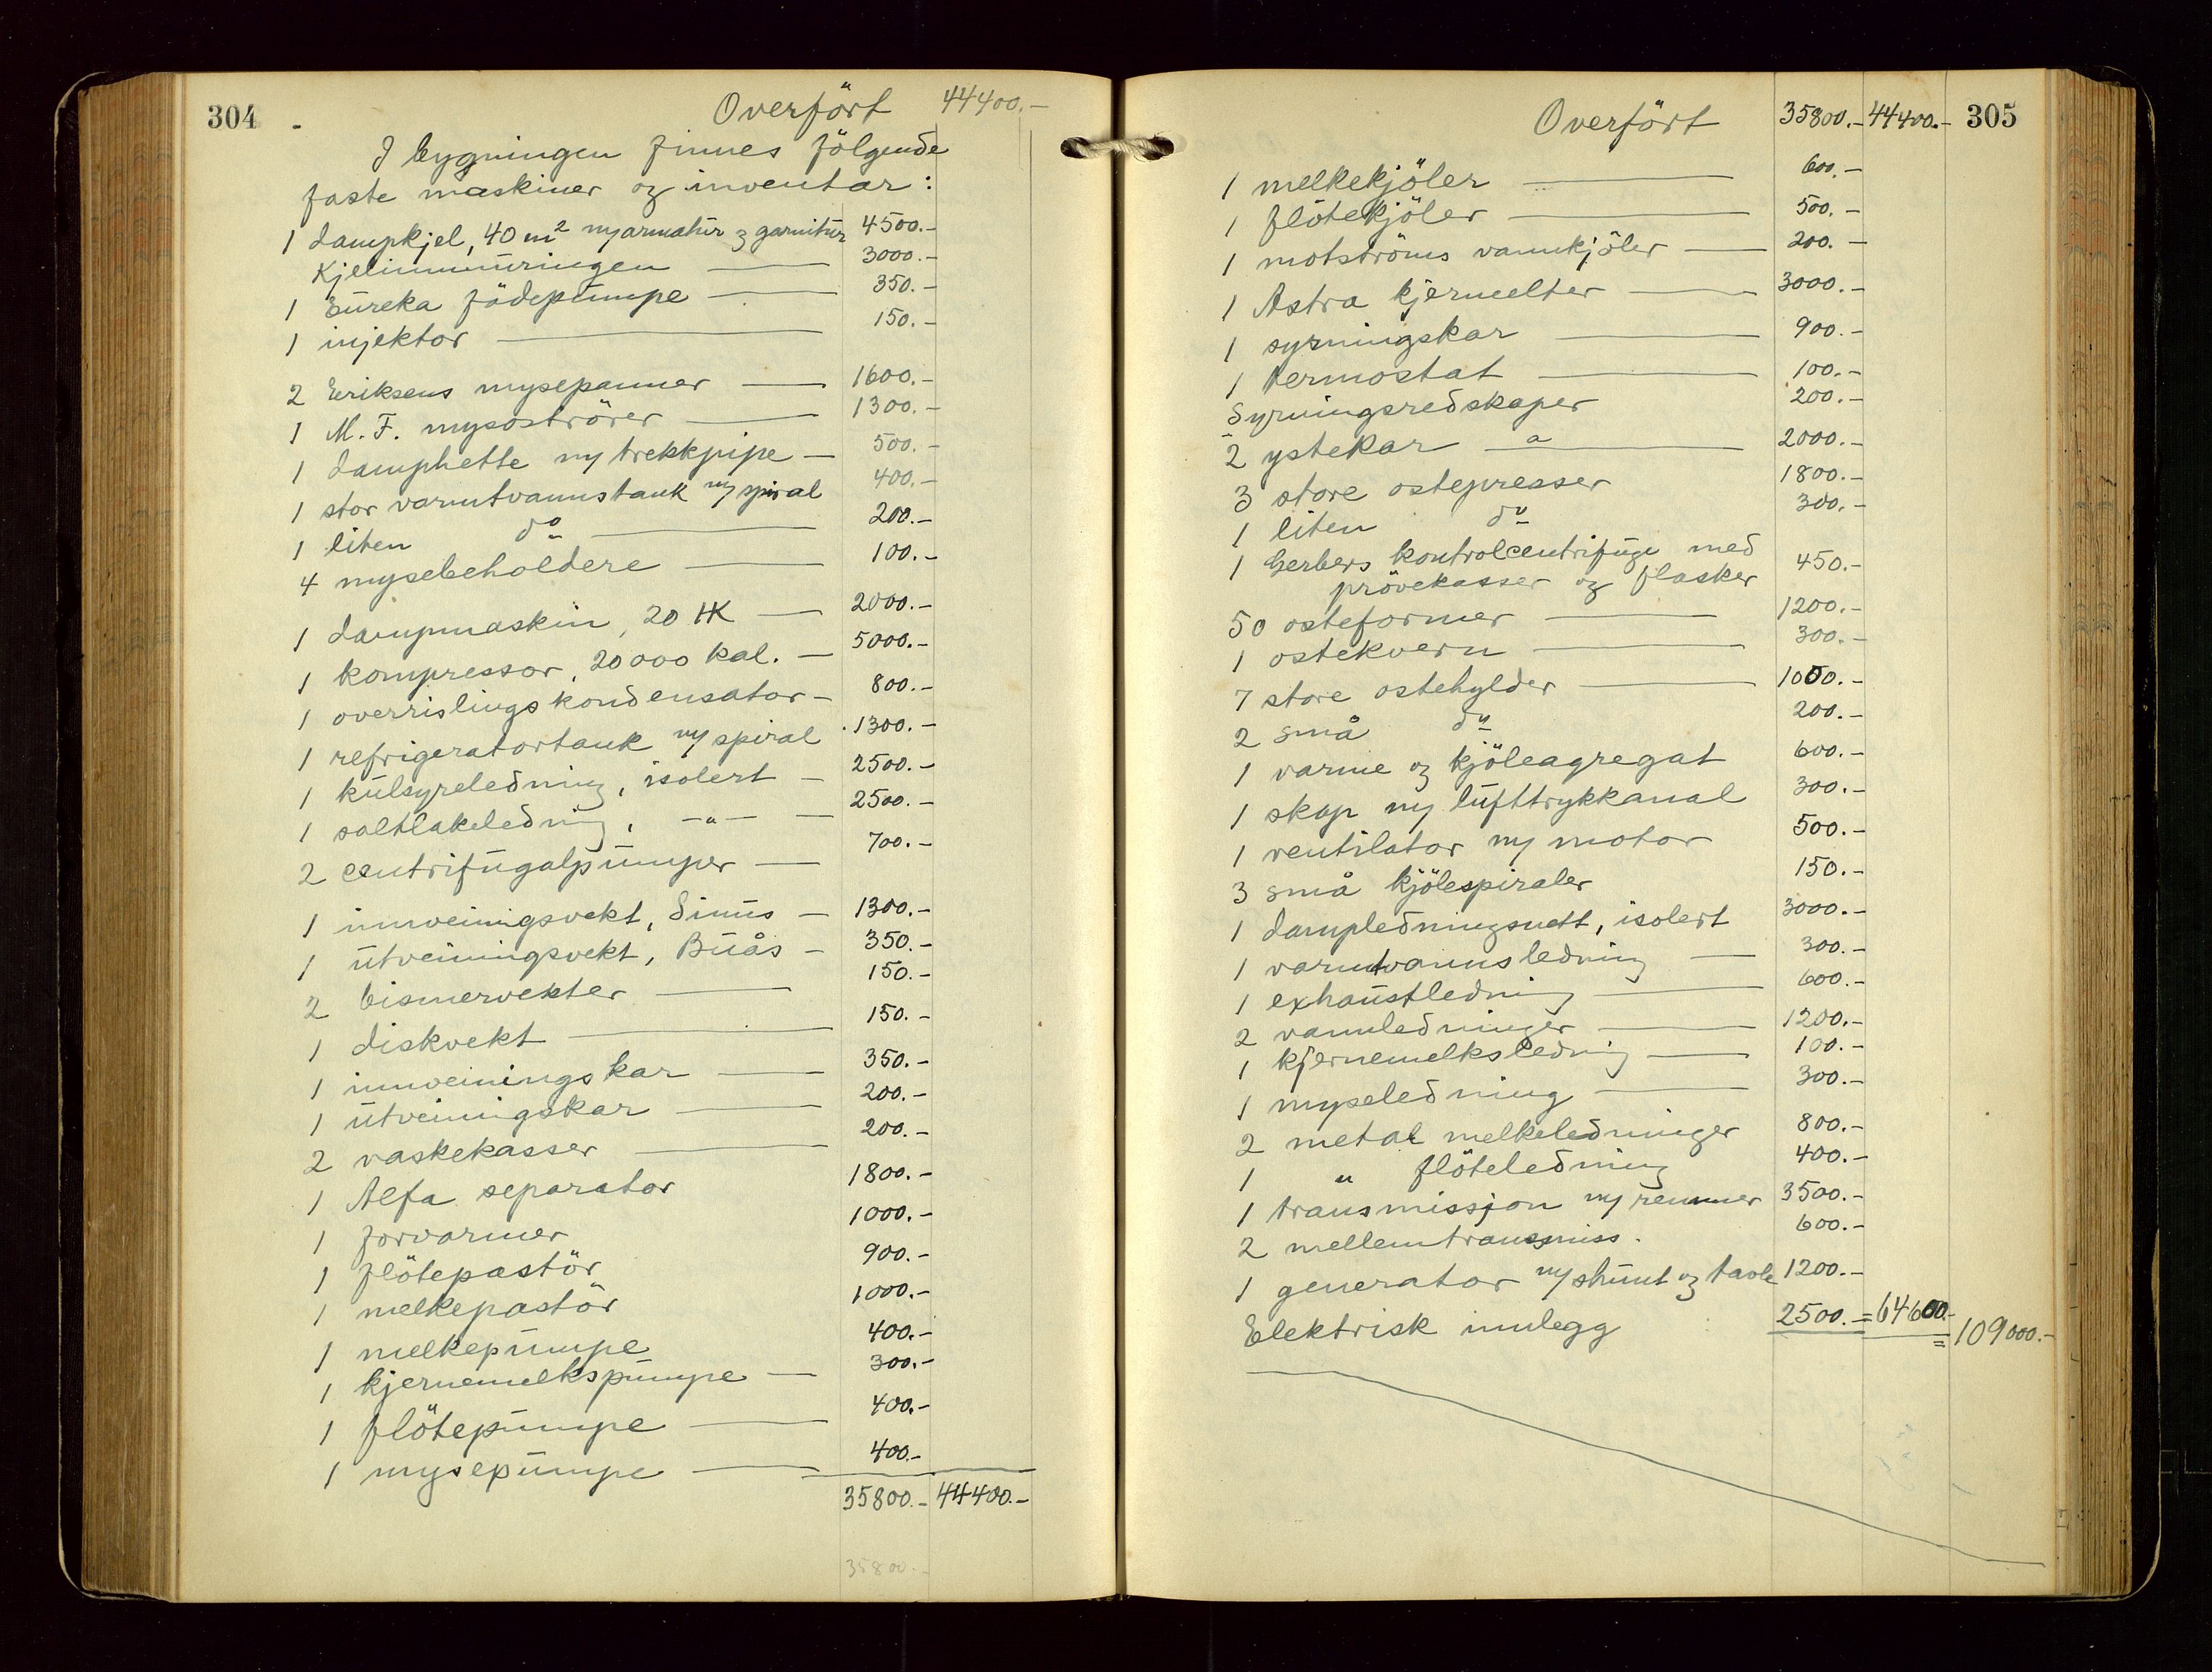 304
Overført 44400.-
I bygningen finnes følgende
faste maskiner og inventar:
1 dampkjel, 40 m² m/armatur & garnitur 4500.-
Kjelinnmuringen 3000.-
1 Eureka fødepumpe 350.-
1 injektor 150.-
2 Eriksens mysepanner 1600.-
1 M. F. mysoströrer 1300.-
1 damphette m/trekkpipe 500.-
1 stor varmtvannstank m/spiral 400.-
1 liten do 200.-
4 mysebeholdere 100.-
1 dampmaskin, 20 HK 2000.-
1 kompressor, 20000 kal. 5000.-
1 overrislingskondensator 800.-
1 refrigeratortank m/spiral 1300.-
1 kulsyreledning, isolert 2500.-
1 saltlakeledning, -"- 2500.-
2 centrifugalpumper 700.-
1 innveiningsvekt, Sinus 1300.-
1 utveiningsvekt, Buås 350.-
2 bismervekter 150.-
1 diskvekt 150.-
1 innveiningskar 350.-
1 utveiningskar 200.-
2 vaskekasser 200.-
1 Alfa separator 1800.-
1 forvarmer 1000.-
1 flötepastör 900.-
1 melkepastör 1000.-
1 melkepumpe 400.-
1 kjernemelkspumpe 300.-
1 flötepumpe 400.-
1 mysepumpe 400.-
35800.- 44400.-
35800.-
Overfört 35800.- 44400.- 305
1 melkekjöler 600.-
1 flötekjöler 500.-
1 motströms vannkjöler 200.-
1 Astra kjernelter 3000.-
1 syrningskar 900.-
1 termostat 100.-
Syrningsredskaper 200.-
2 ystekar a 2000.-
3 store ostepresser 1800.-
1 liten do 300.-
1 Gerbers kontrolcentrifuge med
prövekasser og flasker 450.-
50 osteformer 1200.-
1 ostekvern 300.-
7 store ostehylder 1000.-
2 små do 200.-
1 varme og kjöleagregat 600.-
1 skap m/lufttrykkanal 300.-
1 ventilator m/motor 500.-
3 små kjölespiraler 150.-
1 dampledningsnett, isolert 3000.-
1 varmtvannsledning 300.-
1 exhaustledning 600.-
2 vannledninger 1200.-
1 kjernemelksledning 100.-
1 myseledning 300.-
2 metal melkeledninger 800.-
1 " flöteledning 400.-
1 transmissjon m/remmer 3500.-
2 mellemtransmiss. 600.-
1 generator m/shunt og tavle 1200.-
Elektrisk innlegg 2500.- = 64600.-
= 109000.-